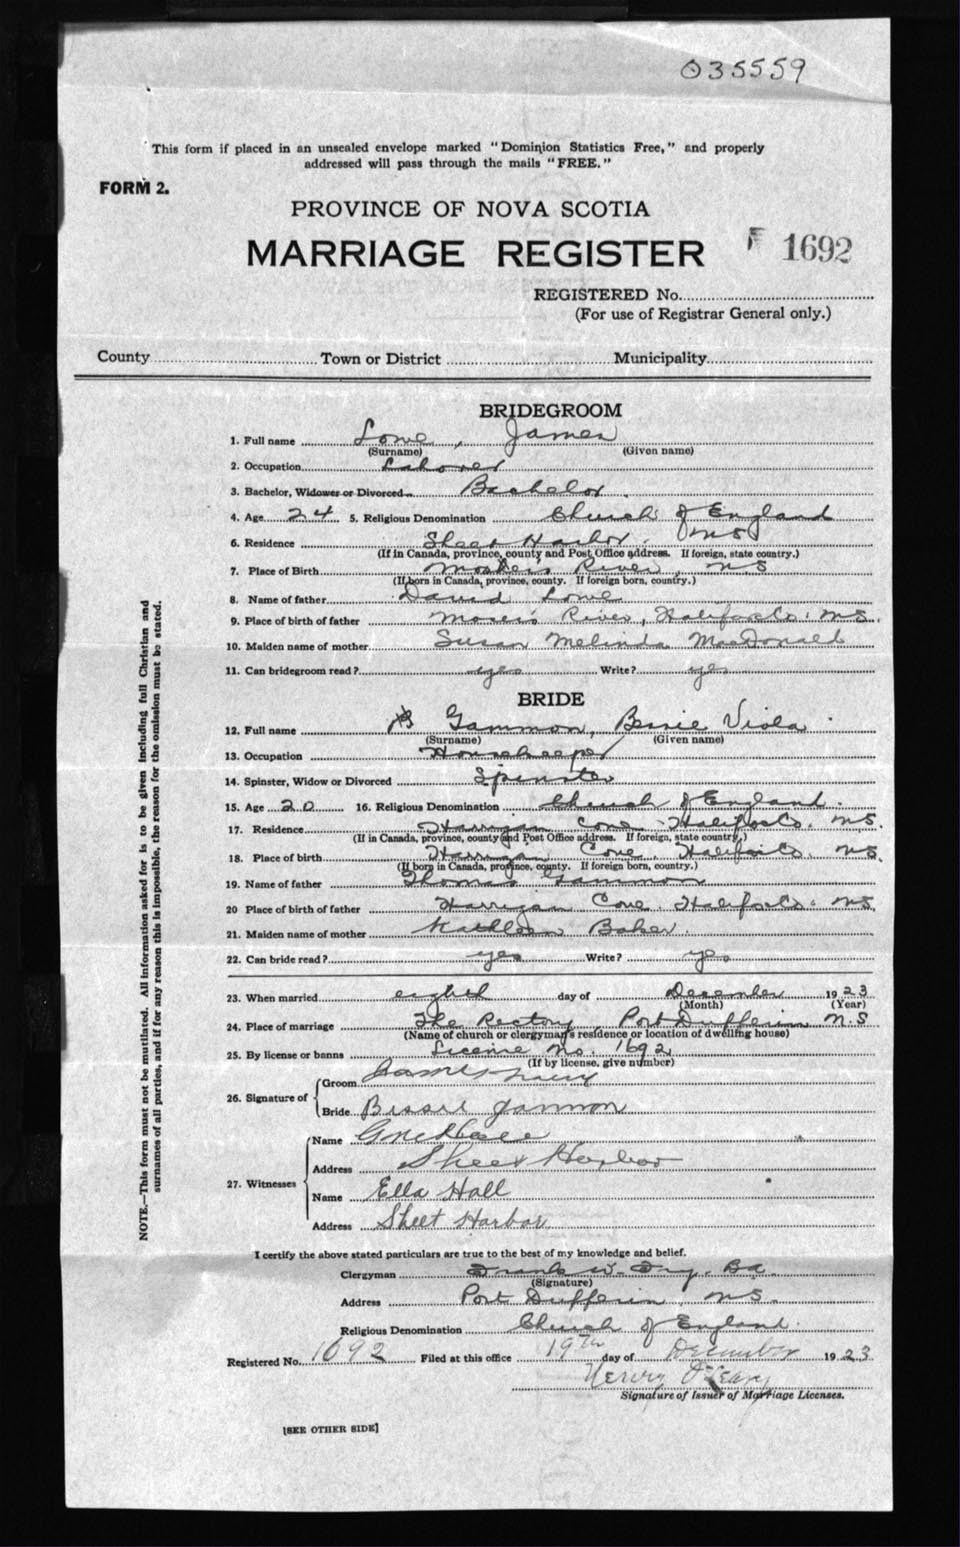 035559
This form if placed in an unsealed envelope marked "Dominion Statistics Free," and properly
addressed will pass through the mails "FREE."
FORM 2.
PROVINCE OF NOVA SCOTIA
MARRIAGE REGISTER 1692
REGISTERED No.
(For use of Registrar General only.)
County Town or District Municipality
BRIDEGROOM
1. Full name Lowe, James
(Surname) (Given name)
2. Occupation Laborer
3. Bachelor, Widower or Divorced Bachelor
4. Age 24 5. Religious Denomination Church of England
6. Residence Sheet Harbor. NS
(If in Canada, province, county and Post Office address. If foreign, state country.)
7. Place of Birth River, NS
(If born in Canada, province, county. If foreign born, country.)
8. Name of father David Lowe
9. Place of birth of father River, Halifax Co. NS.
10. Maiden name of mother Susan Melinda MacDonald
11. Can bridegroom read? yes Write? yes
BRIDE
12. Full name Gammon, Bessie Viola
(Surname) (Given name)
13. Occupation Housekeeper
14. Spinster, Widow or Divorced Spinster
15. Age 20 16. Religious Denomination Church of England.
17. Residence Harrigan Cove Halifax Co. NS.
(If in Canada, province, county and Post Office address. If foreign, state country.)
18. Place of birth Harrigan Cove. Halifax Co. NS.
(If born in Canada, province, county. If foreign born, country.)
19. Name of father Thomas Gammon
20 Place of birth of father Harrigan Cove. Halifax Co. NS.
21. Maiden name of mother Kathleen Baker.
22. Can bride read? yes Write? yes
23. When married eighth day of December 1923
(Month) (Year)
24. Place of marriage The Rectory Port Dufferin N.S
(Name of church or clergyman's residence or location of dwelling house)
25. By license or banns License No. 1692
(If by license, give number)
26. Signature of Groom James
Bride Bessie Gammon
27. Witnesses Name
Address Sheet Harbor
Name Ella Hall
Address Sheet Harbor
I certify the above stated particulars are true to the best of my knowledge and belief.
Clergyman Frank W. Ba.
(Signature)
Address Port Dufferin, NS.
Religious Denomination Church of England.
Registered No. 1692 Filed at this office 19th day of December 1923
Henry O'Leary
Signature of Issuer of Marriage Licenses.
[SEE OTHER SIDE]
NOTE.—This form must not be mutilated. All information asked for is to be given including full Christian and
surnames of all parties, and if for any reason this is impossible, the reason for the omission must be stated.